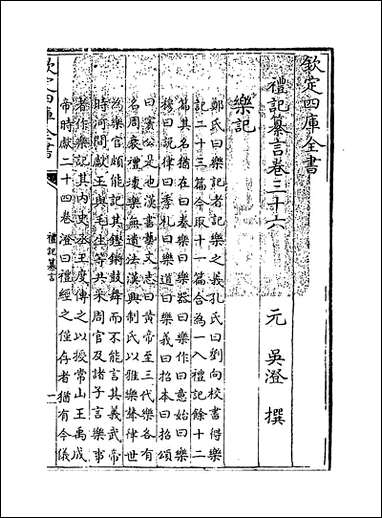 欽定四庫全書
禮記纂言卷三十六
元 吳澄 撰
樂記
鄭氏曰樂記者記樂之義孔氏曰劉向校書得樂
記二十三篇今取十一篇合為一入禮記餘十二
篇其名猶在曰奏樂曰樂器曰樂作曰意始曰樂
穆曰説律曰季札曰樂道曰樂義曰招本曰招頌
曰竇公是也漢書藝文志曰黃帝至三代樂各有
名周衰禮壞樂無遺法漢興制氏以雅樂聲律世
為樂官頗能記其鏗鏘鼓舞而不能言其義武帝
時河間獻王與毛生等共采周官及諸子言樂事
著作樂記其内史丞王度傳之以授常山王禹成
帝時獻二十四卷澄曰禮經之僅存者猶有今儀
欽定四庫全書
禮記纂言
一